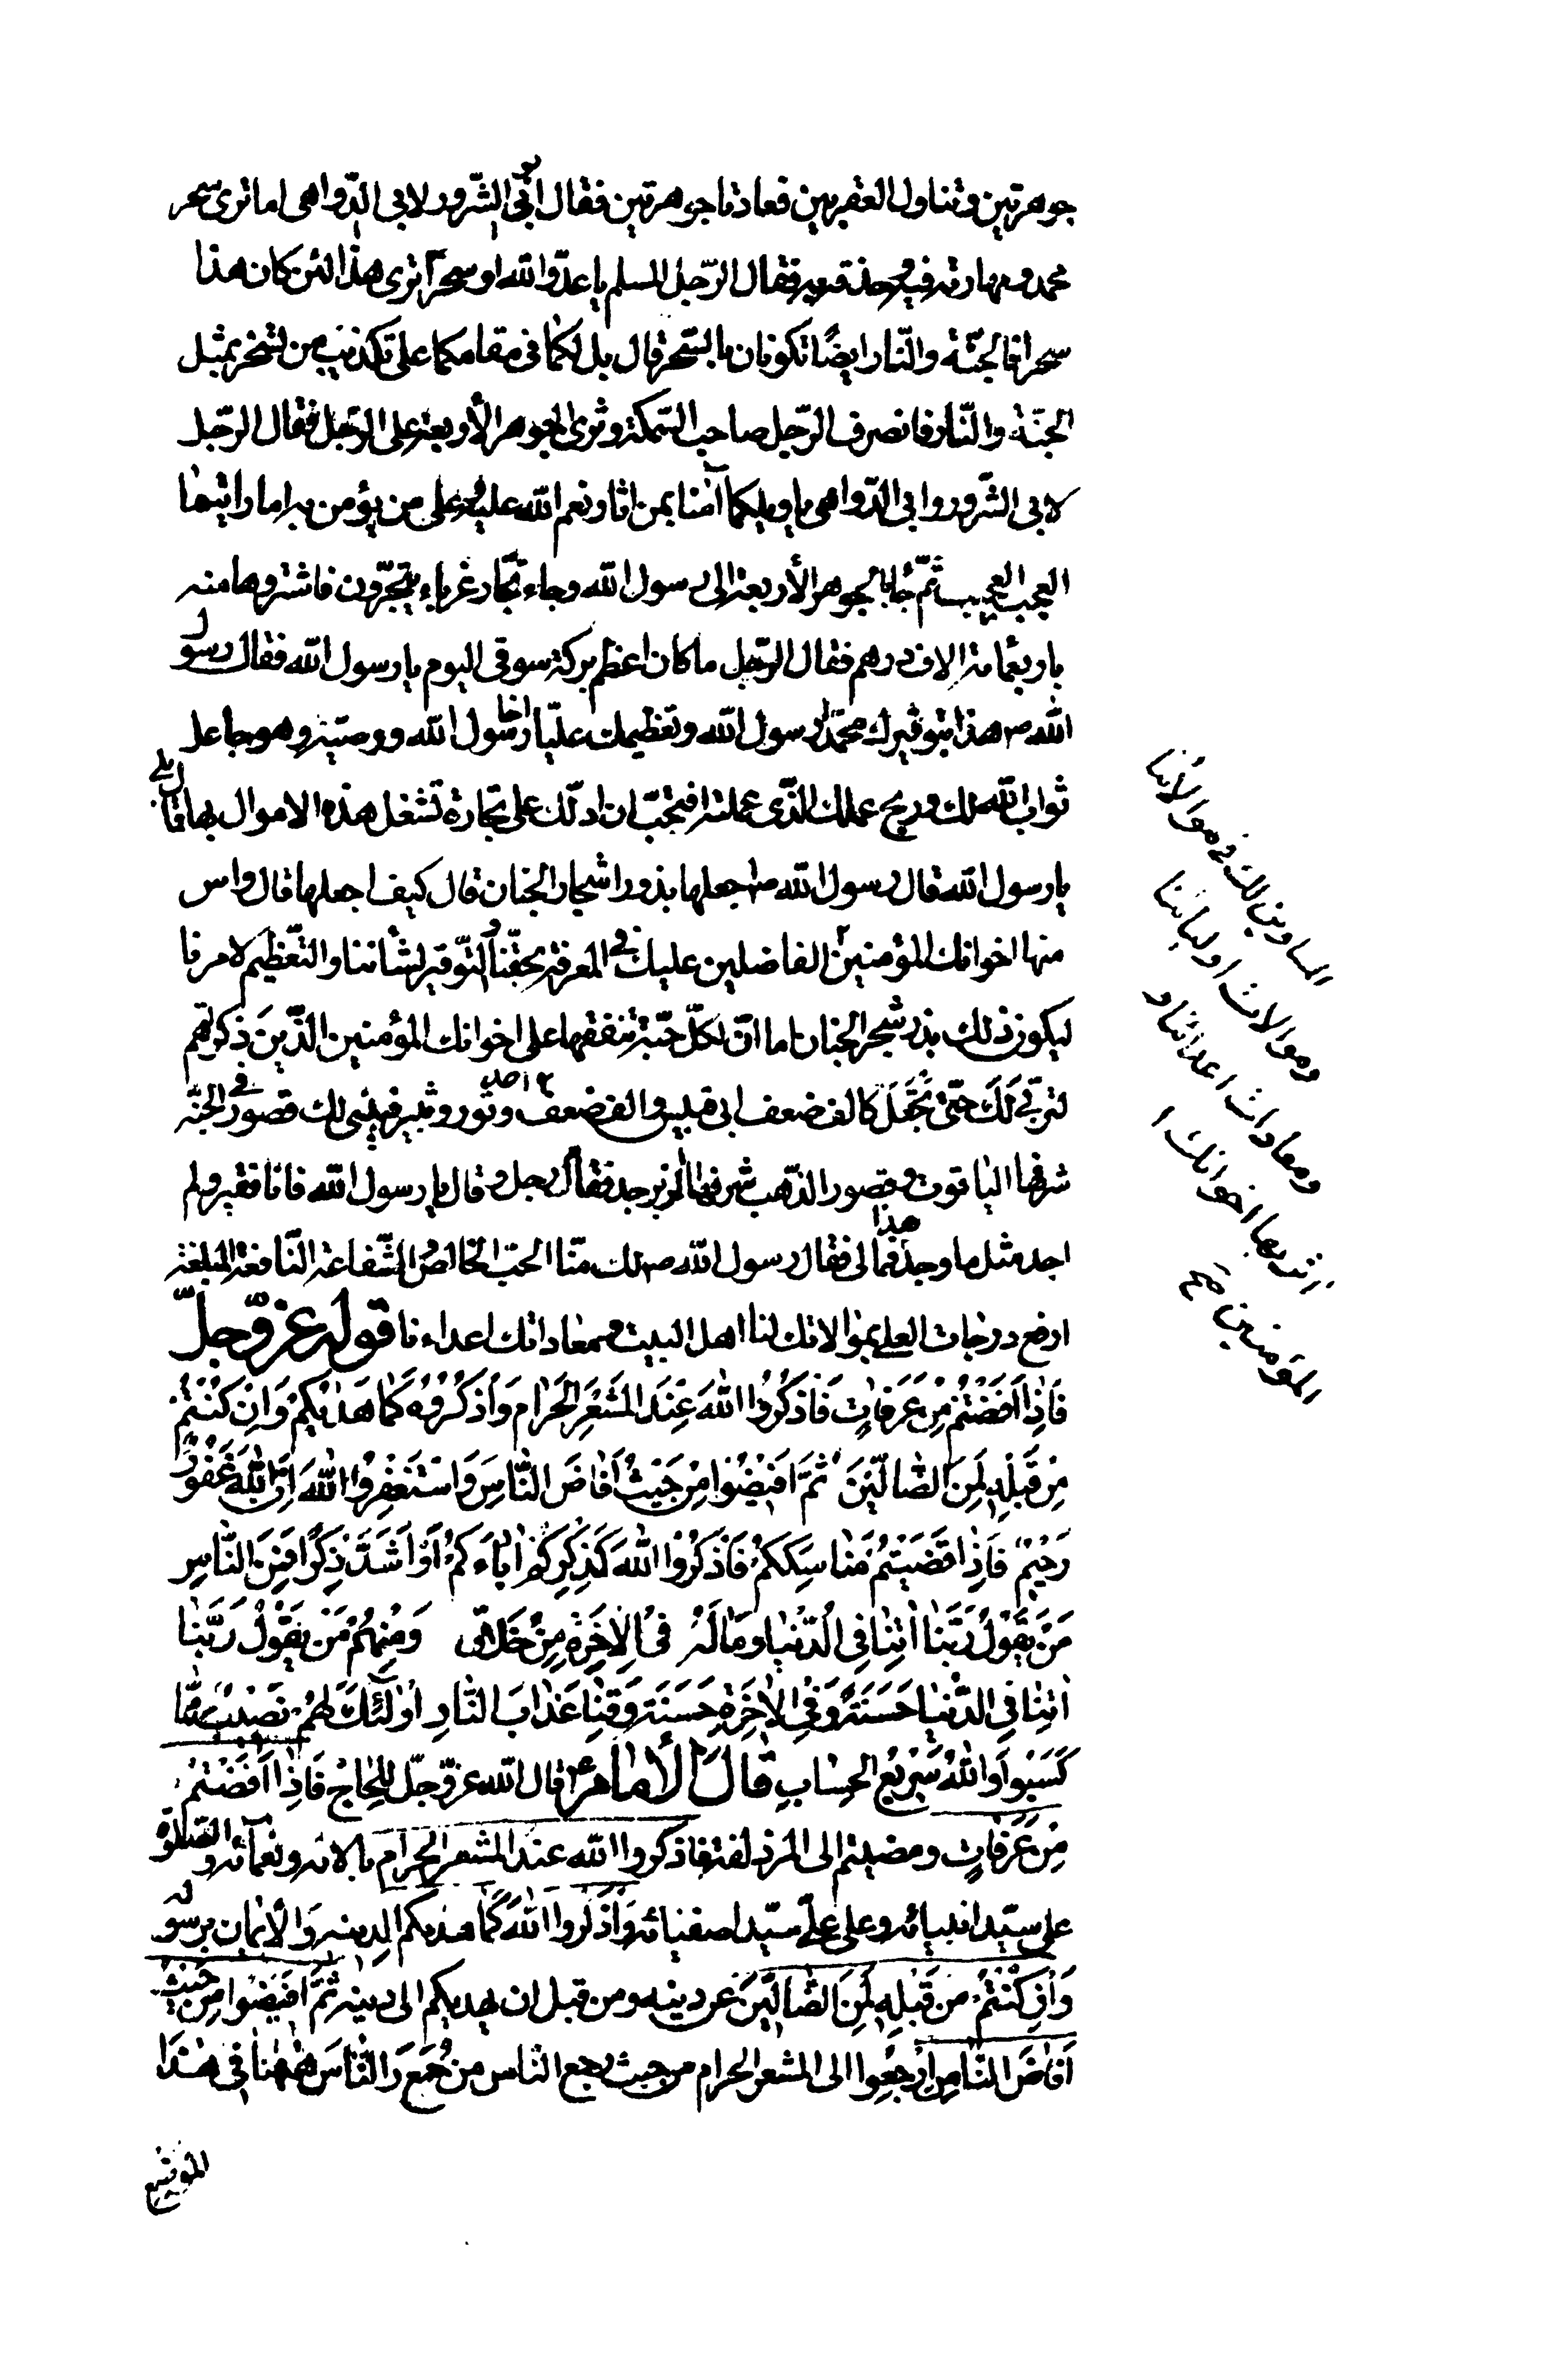 جوهرتين وتناول العقربين فعادتا جوهرتين فقال ابو الشرور لابي الدّواهي اما ترى سحر
محمد ومهارته فيه وحذقه به فقال الرّجل المسلم يا عدوّ الله او سحراً ترى هذا لئن كان هذا
سحرا فالجنّة والنّار ايضًا تكونان بالسّحر قال بل لكما في مقامكما على تكذيب من يسخر بمثل
الجنّة والنّار فانصرف الرّجل صاحب السّمكة وترك الجوهر الأربعة على الرّجل فقال الرّجل
لابي الشّرور وابي الدّواهي يا ويلكما آمنا بمن آثار نعم الله عليه وعلى من يؤمن به اما رايتما
العجب العجيب ثمّ جاء بالجوهر الأربعة الى رسول الله وجاء تجّار غرباء يتجرون فاشتروها منه
باربعمائة الاف درهم فقال الرّجل ما كان اعظم بركة سوقي اليوم يا رسول الله فقال رسول
الله ص هذا بتوقيرك محمّدا رسول الله وتعظيمك عليّا اخا رسول الله ووصيّه وهو عاجل
ثواب الله لك وربح عملك الذّي عملته افتحبّ ان ادلّك على تجارة تشغل هذه الاموال بها قال بلى
يا رسول الله قال رسول الله ص اجعلها بذور اشجار الجنان قال كيف اجعلها قال واس
منها اخوانك المؤمنين الفاضلين عليك في المعرفة بحقّنا والتّوقير لشأننا والتّعظيم لامرنا
ليكون ذلك بذر شجر الجنان اما انّ لكلّ حبّة تنفقها على اخوانك المؤمنين الذّين ذكرتهم
لتربّى لك حتّى تجعل كالف ضعف ابي قبيس والف ضعف احد وثور وثبير فيبنى لك قصور في الجنّة
شرفها الياقوت وقصور الذّهب شرفها الزبرجد فقال رجل وقال يا رسول الله فانا فقير ولم
اجد مثل ما وجد هذا فما لي فقال رسول الله ص لك منّا الحبّ الخالص الشّفاعة النّافعة المبلغة
ارفع درجات العلى بموالاتك لنا اهل البيت ومعاداتك اعداءنا قوله عزّ وجلّ
فَاِذا اَفَضْتُمْ مِنْ عَرَفاتٍ فَاذْكُرُوا اللهَ عِنْدَ المَشْعَرِ الْحَرامِ وَاذْكُرُوهُ كَما هَدٰيكُمْ وَاِنْ كُنْتُمْ
مِنْ قَبْلِهِ لَمِنَ الضّالّينَ ثُمَّ اَفيضُوا مِنْ حَيْثُ اَفاضَ النّاسُ وَاسْتَغْفِرُوا اللهَ اِنَّ اللهَ غَفُورٌ
رَحيمٌ فَاِذا قَضَيْتُمْ مَناسِكَكُمْ فَاذْكُرُوا اللهَ كَذِكْرِكُمْ اٰباءَكُمْ اَوْ اَشَدَّ ذِكْرًا فَمِنَ النّاسِ
مَنْ يَقُولُ رَبَّنا اٰتِنا فِي الدُّنْيا وَمالَهُ فِي الاٰخِرَةِ مِنْ خَلاقٍ وَمِنْهُمْ مَنْ يَقُولُ رَبَّنا
اٰتِنا فِي الدُّنْيا حَسَنَةً وَفِي الاٰخِرَةِ حَسَنَةً وَقِنا عَذابَ النّارِ اُولٰئِكَ لَهُمْ نَصيبٌ مِمّا
كَسَبُوا وَاللهُ سَريعُ الْحِسابِ قال الأمام ع قال الله عزّ وجلّ للحاجّ فَاِذا اَفَضْتُمْ
مِنْ عَرَفاتٍ ومضيتم الى المزدلفة فاذكروا الله عند المشعر الحرام بالائه ونعمائه والصّلاة
على سيّد انبيائه وعلى عليّ سيّد اصفيائه وَاذْكُروا اللهَ كَما هديكم لدينه والأيمان برسوله
وَاِنْ كُنْتُمْ مِن قَبْلِهِ لَمِنَ الضّالّينَ عن دينه ومن قبل ان يهديكم الى دينه ثُمَّ اَفيضُوا مِنْ حَيْثُ
اَفاضَ النّاسُ ارجعوا الى المشعر الحرام من حيث رجع النّاس من جُمَع والنّاس هٰهنا في هذا
الموضع
المساوين لك في موالاتنا
وموالات اوليائنا
ومعادات اعدائنا و
اثر بها اخوانك ا
المؤمنين صح